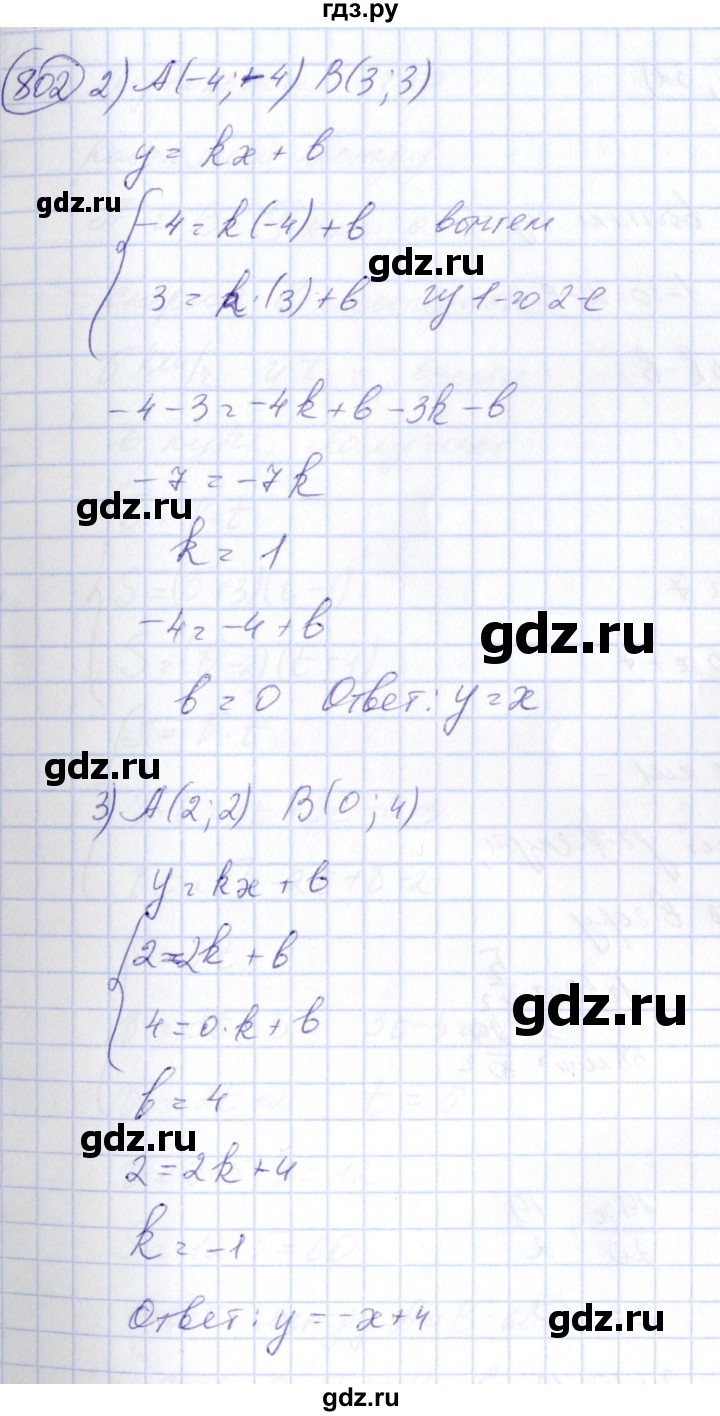 гдз.ру
802 2) A(-4;-4) B(3;3)
y = kx + b
gdz.ru
-4 = k(-4) + b вычтем
gdz.ru
3 = k·(3) + b из 1-го 2-е
-4-3 = -4k + b - 3k - b
-7 = -7k
gdz.ru
k = 1
-4 = -4 + b
gdz.ru
b = 0 Ответ: y = x
gdz.ru
3) A(2;2) B(0;4)
y = kx + b
2 = 2k + b
gdz.ru
4 = 0·k + b
b = 4
gdz.ru
2 = 2k + 4
k = -1
Ответ: y = -x + 4
gdz.ru
gdz.ru